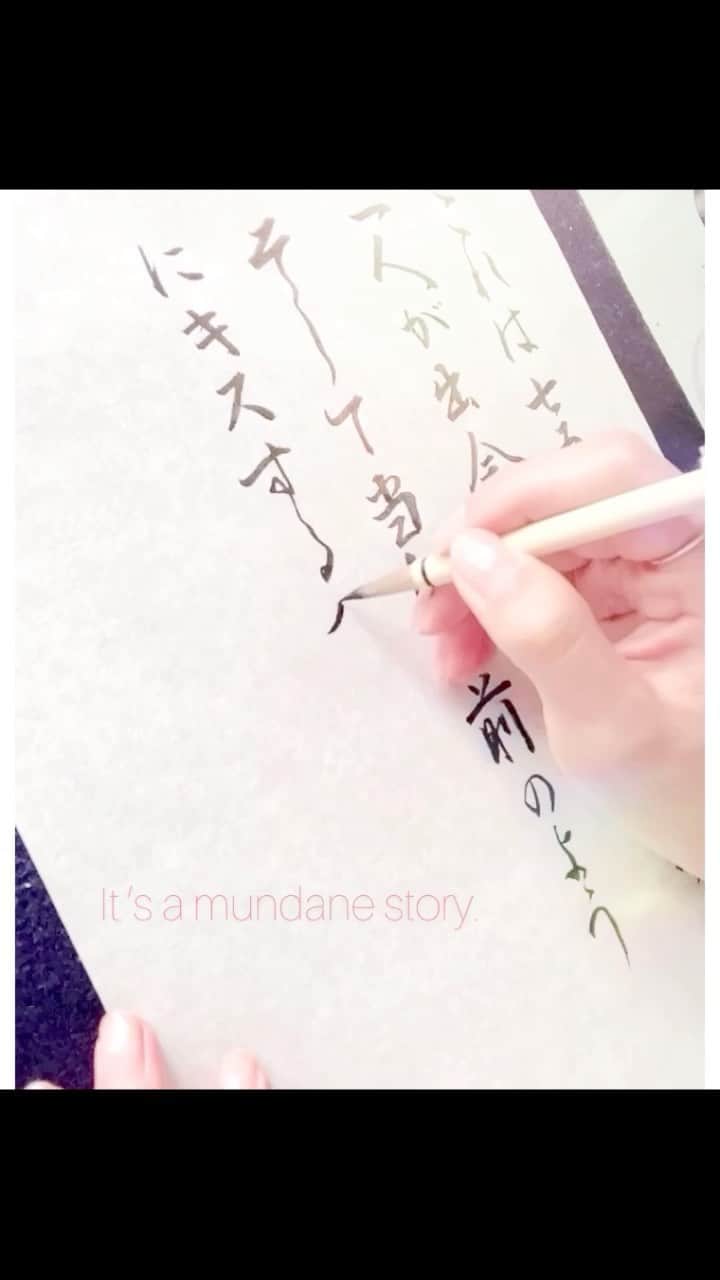 れは
人が出会
そして当 前のよう
にキスする
It's a mundane story.